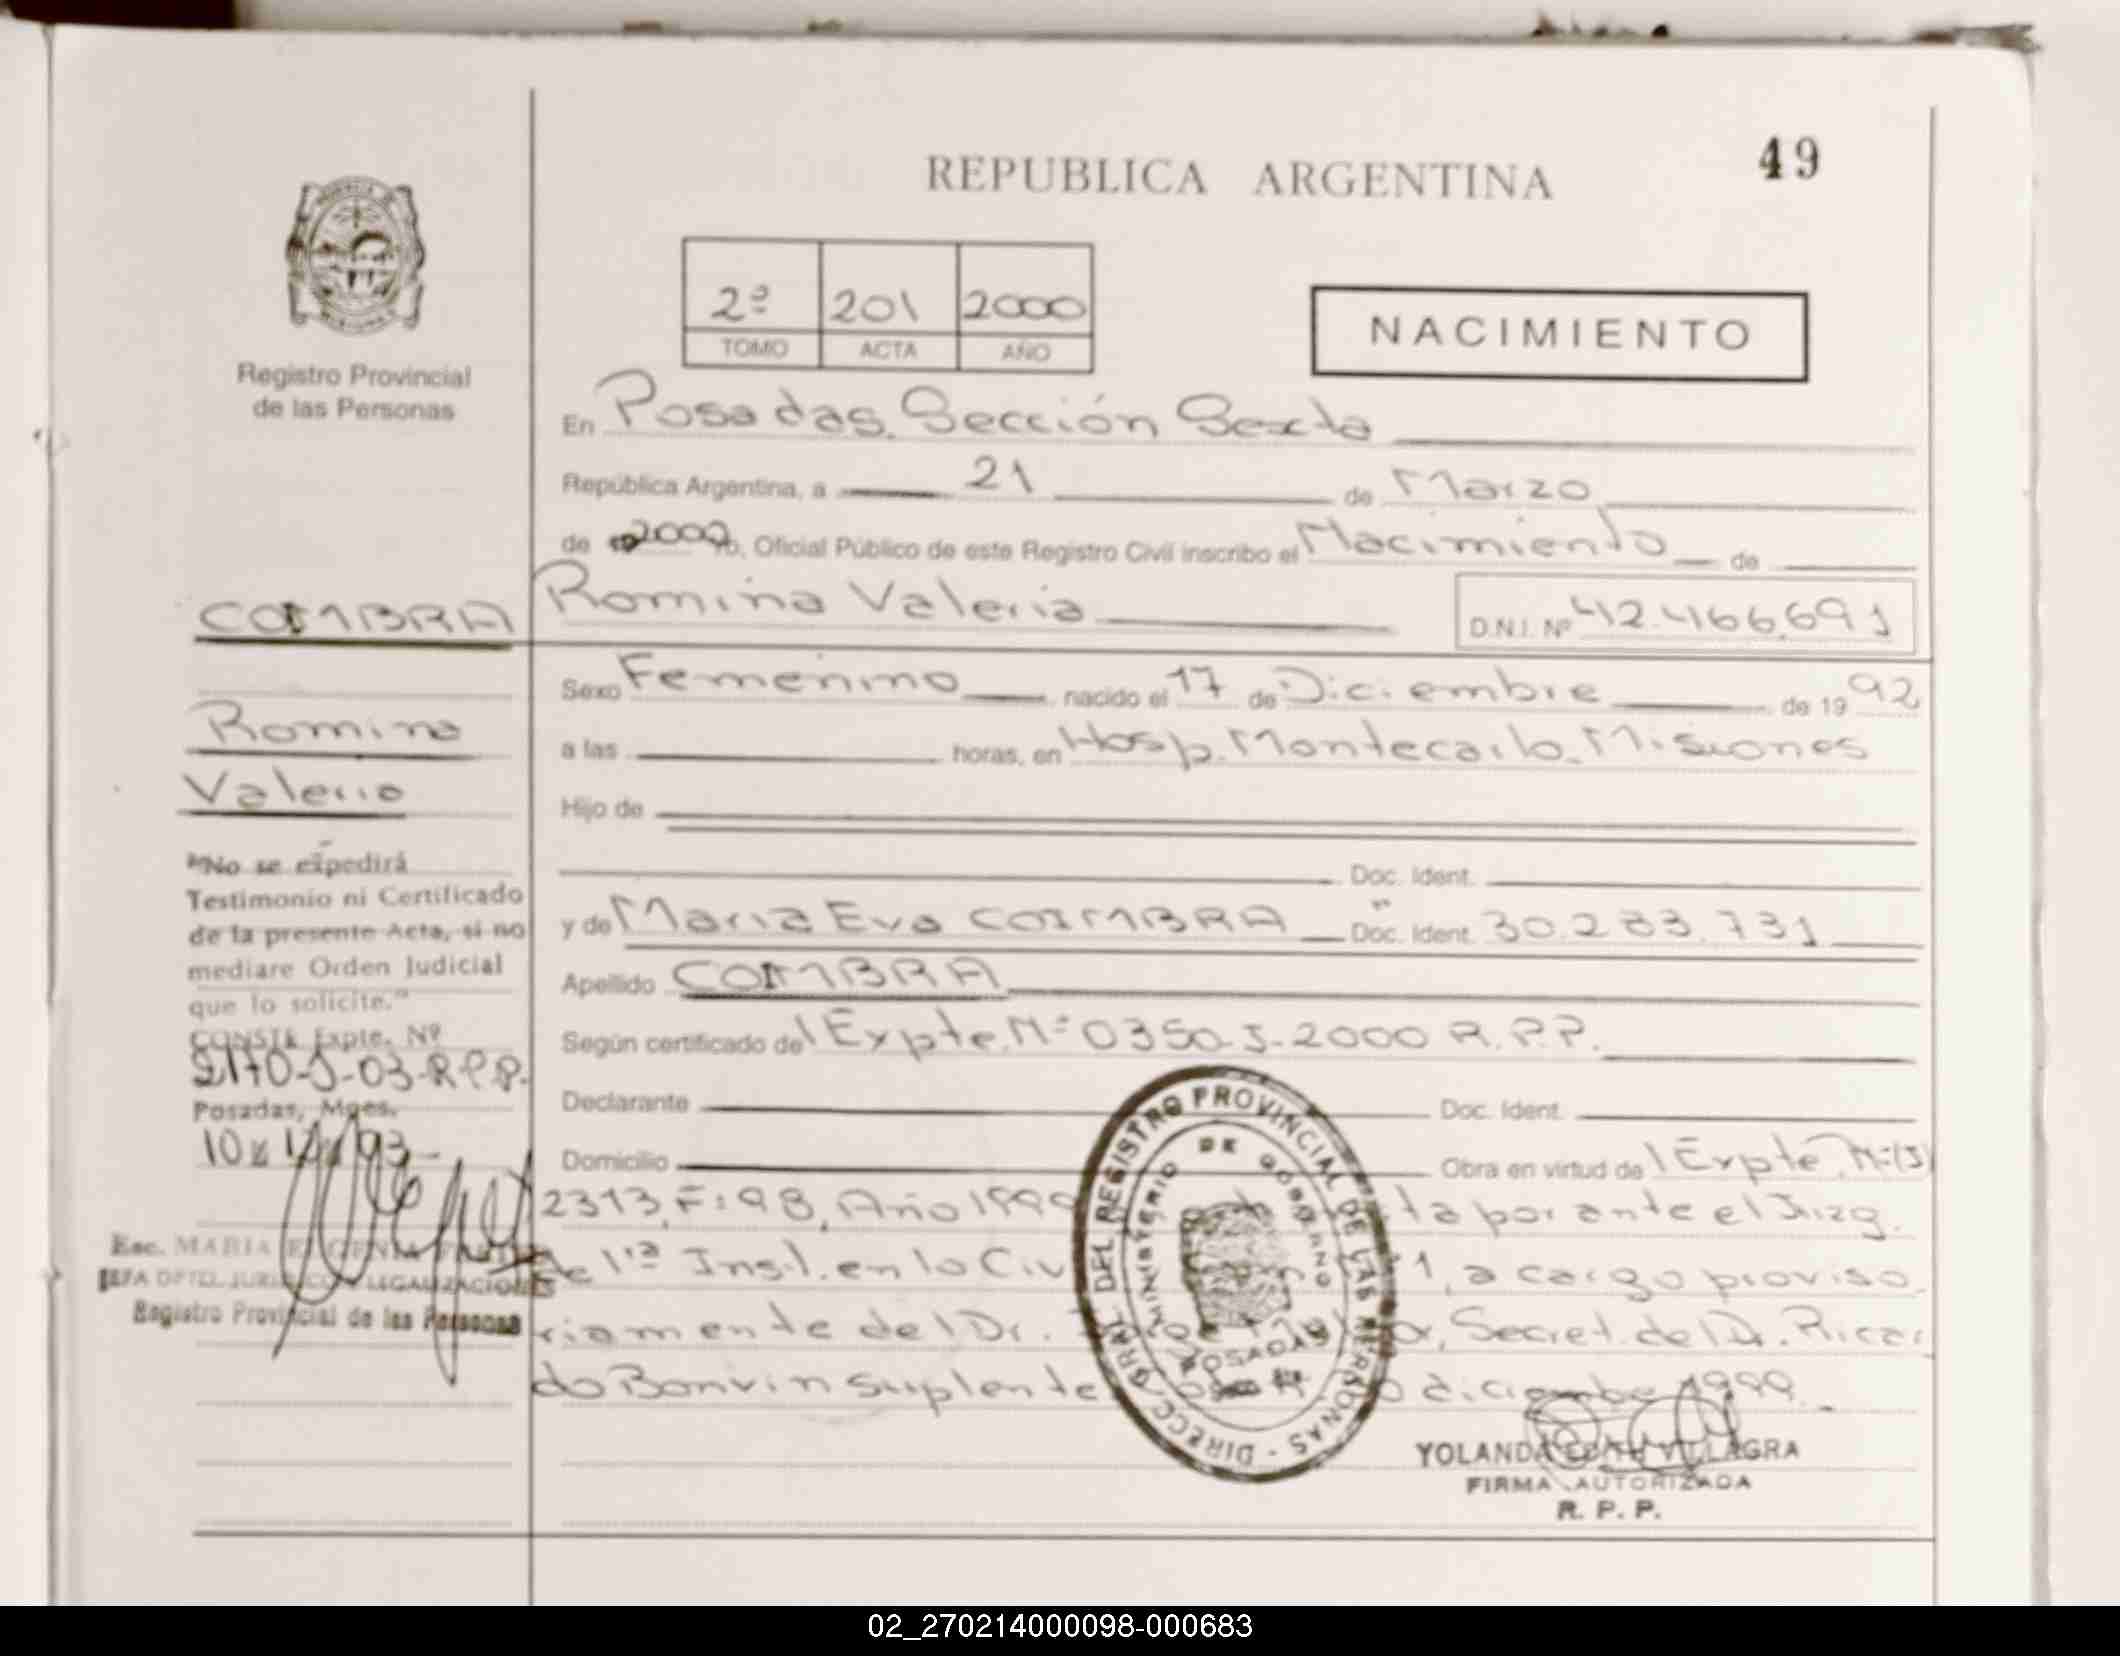 49
REPUBLICA ARGENTINA
2º 201 2000
TOMO ACTA AÑO
NACIMIENTO
Registro Provincial
de las Personas
En Posadas. Sección Sexta
República Argentina, a 21 de Marzo
de 2000 Yo, Oficial Público de este Registro Civil inscribo el Nacimiento de
COIMBRA Romina Valeria D.N.I. Nº 42.466.691
Sexo Femenino nacido el 17 de Diciembre de 1992
Romina
a las horas, en Hosp. Montecarlo. Misiones
Valeria
Hijo de
Doc. Ident.
y de Maria Eva COIMBRA Doc. Ident. 30.283.731
Apellido COIMBRA
Según certificado del Expte. Nº 0350-J-2000 R.P.P.
Declarante Doc. Ident.
Domicilio Obra en virtud del Expte. Nº
2313, Fº 98, Año 1999 ta por ante el Juzg.
de 1ra Inst. en lo Civ 1, a cargo proviso
riamente del Dr. Secret. del Dr. Ricar
do Bonvin suplente diciembre 1999.
"No se expedirá
Testimonio ni Certificado
de la presente Acta, si no
mediare Orden Judicial
que lo solicite."
CONSTE Expte. Nº
2170-J-03-R.P.P.
Posadas, Mnes.
10
Esc. MARIA EUGENIA
JEFA DPTO. JURIDICO Y LEGALIZACIONES
Registro Provincial de las Personas
DIRECC. GRAL. DEL REGISTRO PROVINCIAL DE LAS PERSONAS
MINISTERIO DE GOBIERNO
POSADAS
YOLANDA EDITH VILLAGRA
FIRMA AUTORIZADA
R. P. P.
02_270214000098-000683